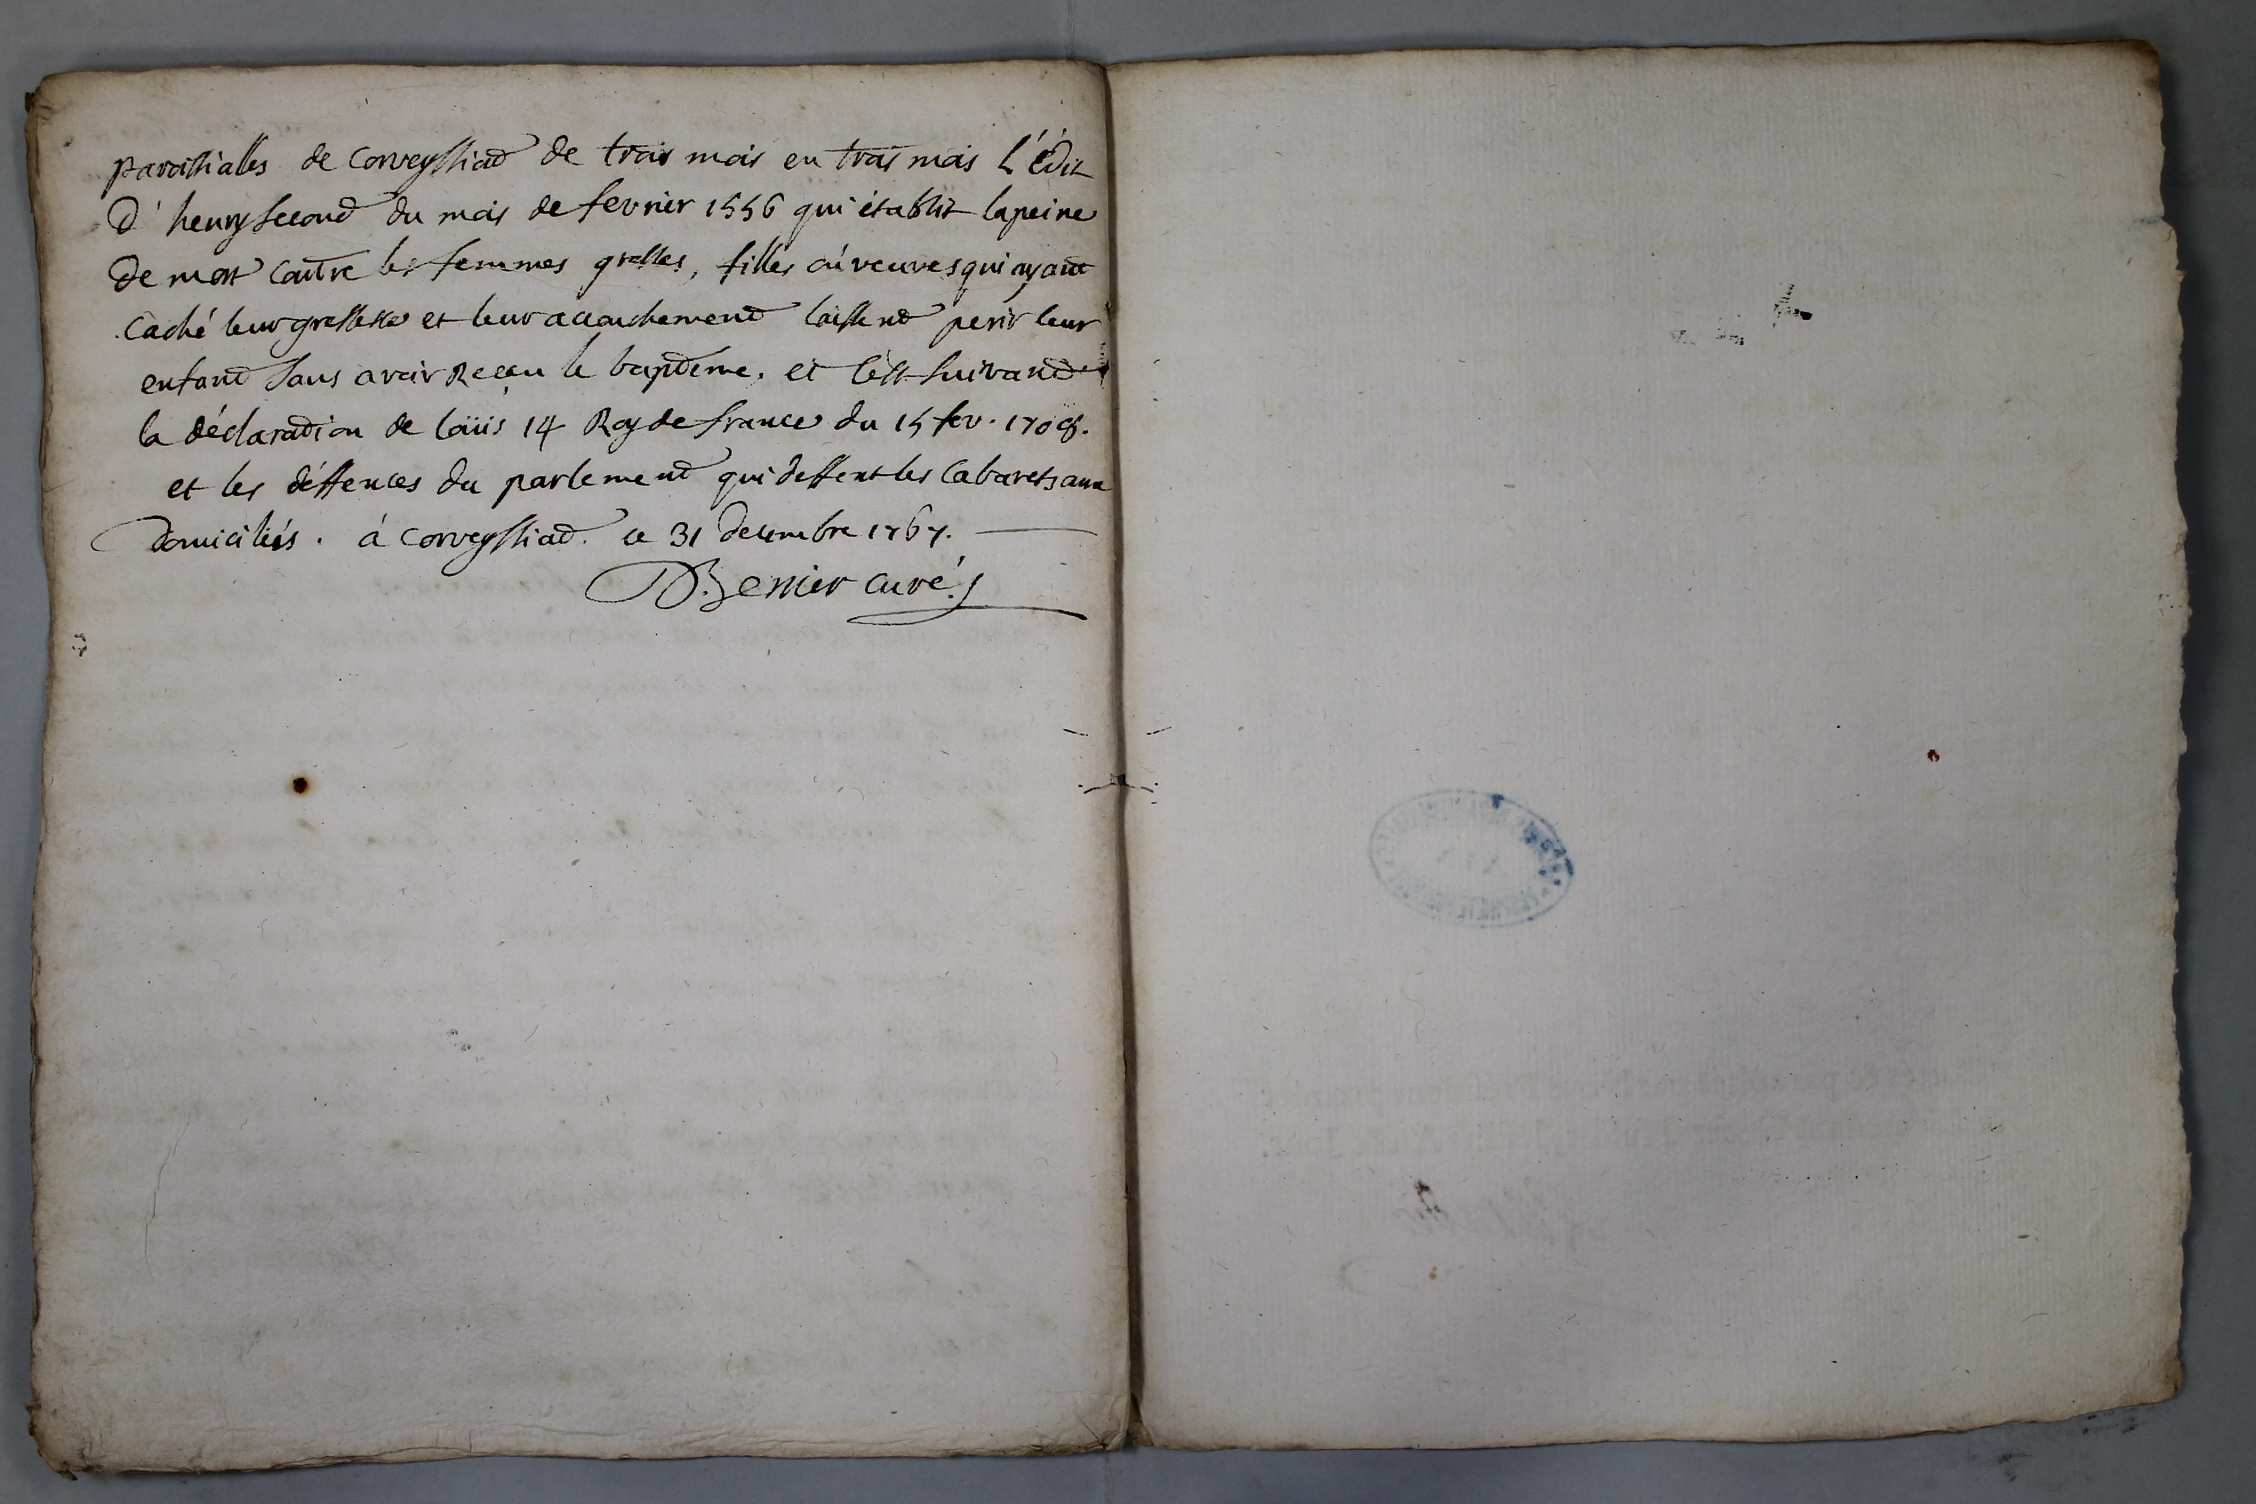 paroissialles de Corveyssiat de trois mois en trois mois L'édit
d'henry second du mois de fevrier 1556 qui établit la peine
de mort contre les femmes grosses, filles où veuves qui ayant
caché leur grossesse et leur accouchement laissent perir leur
enfant sans avoir Receu le baptême. et c'est suivant
la déclaration de loüis 14 Roy de france du 15 fev. 1708.
et les déffences du parlement qui deffent les Cabarets aux
domiciliés. à Corveyssiat. ce 31 decembre 1767.
curé